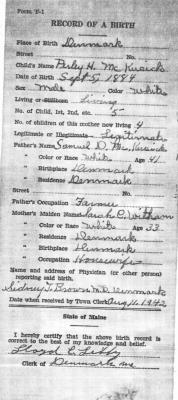 Form V-1
RECORD OF A BIRTH
Place of Birth Denmark
Street No.
Child's Name Perley H. McKusick
Date of Birth Sept 5, 1884
Sex Male Color White
Living or Stillborn Living
No. of Child, 1st, 2nd, etc.
No. of children of this mother now living 4
Legitimate or Illegitimate Legitimate
Father's Name Samuel D. McKusick
" Color or Race White Age 41
" Birthplace Denmark
" Residence Denmark
Street No.
Father's Occupation Farmer
Mother's Maiden Name Sarah C. Witham
" Color or Race White Age 33
" Residence Denmark
" Birthplace Denmark
" Occupation Housewife
Name and address of Physician (or other person)
reporting said birth.
Sidney T. Brown M.D. Denmark
Date when received by Town Clerk Aug 11, 1942
State of Maine
I hereby certify that the above birth record is
correct to the best of my knowledge and belief.
Lloyd C. Libby
Clerk of Denmark Me